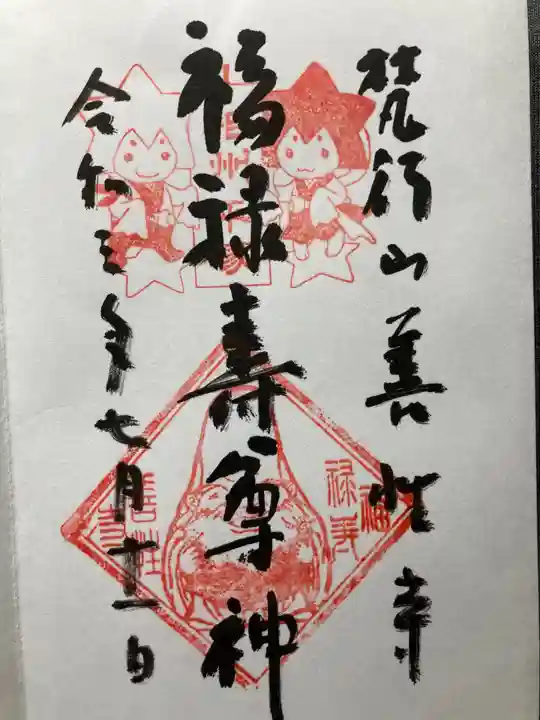 梵行山善性寺
福禄寿尊神
令和三年七月十二日
福
禄寿
善性
寺